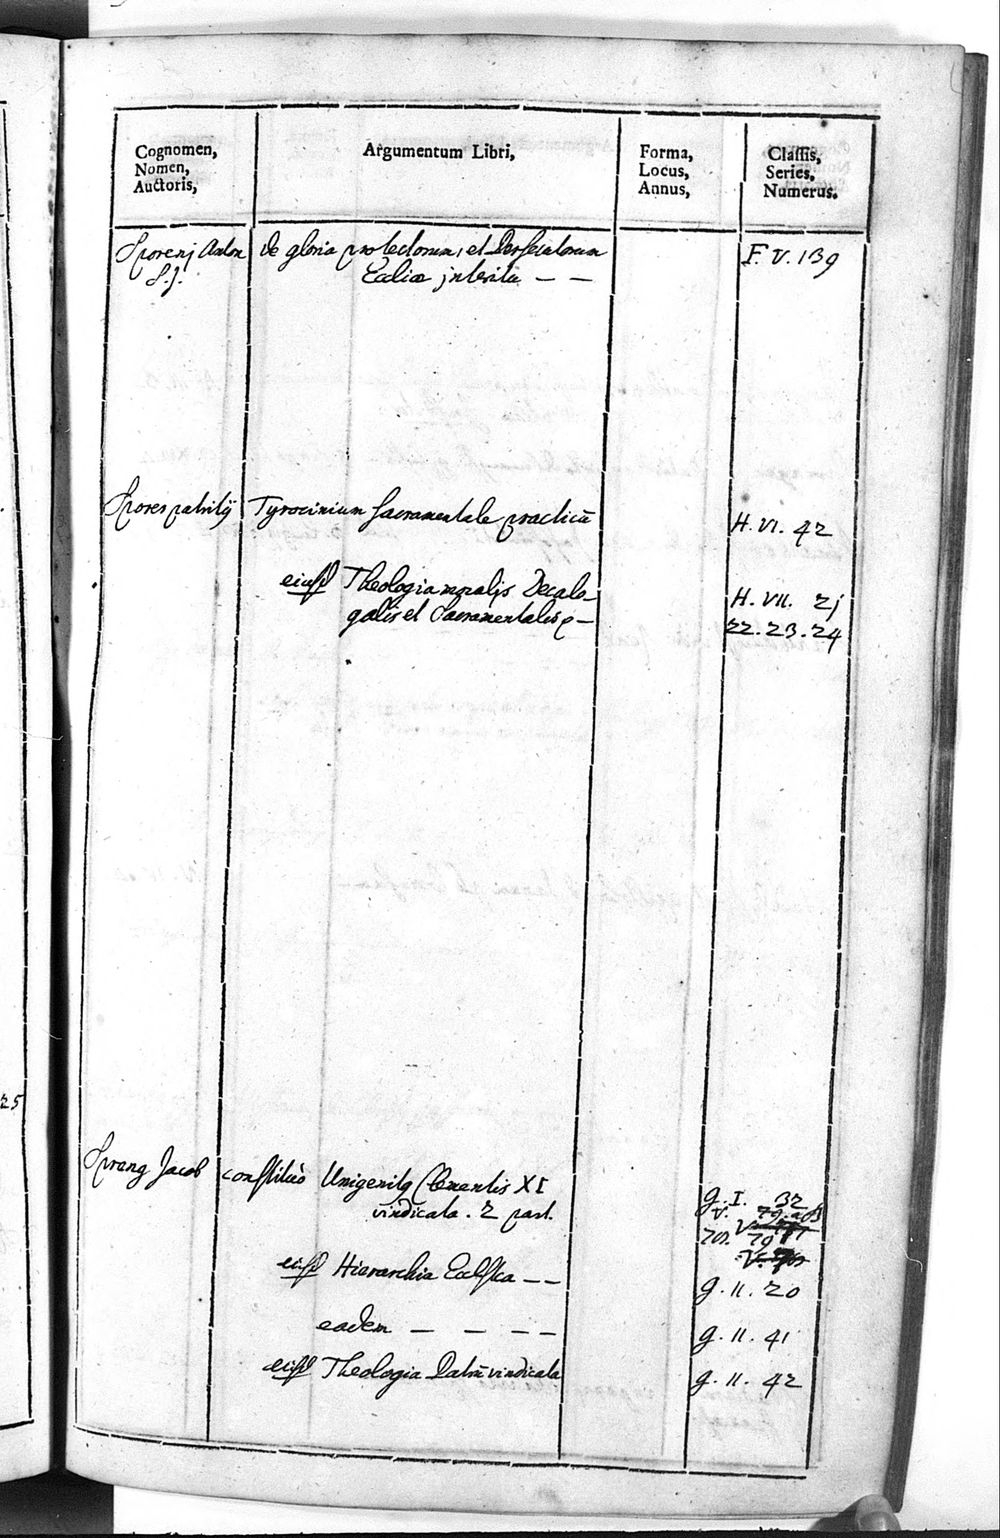 Cognomen,
Nomen,
Auctoris,
Argumentum Libri,
Forma,
Locus,
Annus,
Classis,
Series,
Numerus.
Sporenj Anton
S.J.
de gloria protectorum, et Persecutorum
Eccliæ jnteritu — —
F. V. 139
Spores patritij
Tyrocinium Sacramentale practicū
H. VI. 42
eiusd Theologia moralis Decalo-
galis et Sacramentalis
H. VII. 21
22. 23. 24
25
Sprang Jacob
Unigenitq Clementis XI
vindicata. 2 part.
g. I. 32
eiusd Hierarchia Ecclsca — —
g. II. 20
eadem — — — —
g. II. 41
eiusd Theologia vindicata
g. II. 42